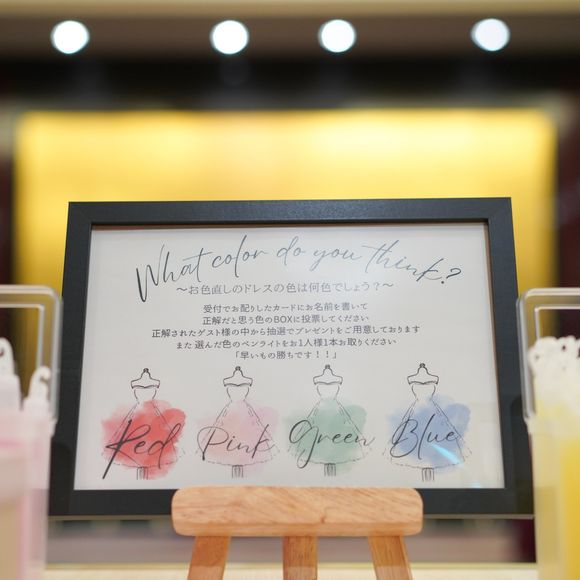 What color do you think?
～お色直しのドレスの色は何色でしょう？～
受付でお配りしたカードにお名前を書いて
正解だと思う色のBOXに投票してください
正解されたゲスト様の中から抽選でプレゼントをご用意しております
また 選んだ色のペンライトをお1人様1本お取りください
「早いもの勝ちです！！」
Red Pink Green Blue